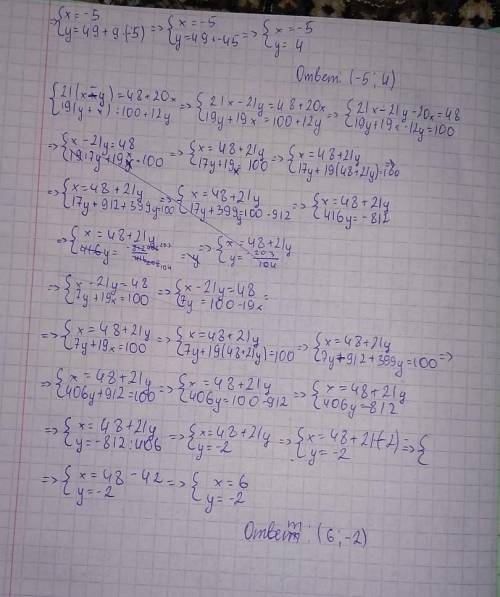 ⇒ {x=-5 {y=49+9·(-5) ⇒ {x=-5 {y=49+-45 ⇒ {x=-5 {y=4
Ответ: (-5; 4)
{21(x-y)=48+20x {19(y+x)=100+12y ⇒ {21x-21y=48+20x {19y+19x=100+12y ⇒ {21x-21y-20x=48 {19y+19x-12y=100
⇒ {x-21y=48 {17y+19x=100 ⇒ {x=48+21y {17y+19x=100 ⇒ {x=48+21y {17y+19(48+21y)=100 ⇒
⇒ {x=48+21y {17y+912+399y=100 ⇒ {x=48+21y {17y+399y=100-912 ⇒ {x=48+21y {416y=-812
⇒ {x=48+21y {416y= = y ⇒ {x=48+21y {y=-203/104
⇒ {x-21y=48 {7y+19x=100 ⇒ {x-21y=48 {7y=100-19x =
⇒ {x=48+21y {7y+19x=100 ⇒ {x=48+21y {7y+19(48+21y)=100 ⇒ {x=48+21y {7y+912+399y=100 ⇒
⇒ {x=48+21y {406y+912=100 ⇒ {x=48+21y {406y=100-912 ⇒ {x=48+21y {406y=-812
⇒ {x=48+21y {y=-812:406 ⇒ {x=48+21y {y=-2 ⇒ {x=48+21(-2 {y=-2 ⇒ {
⇒ {x=48-42 {y=-2 ⇒ {x=6 {y=-2
Ответ: (6; -2)